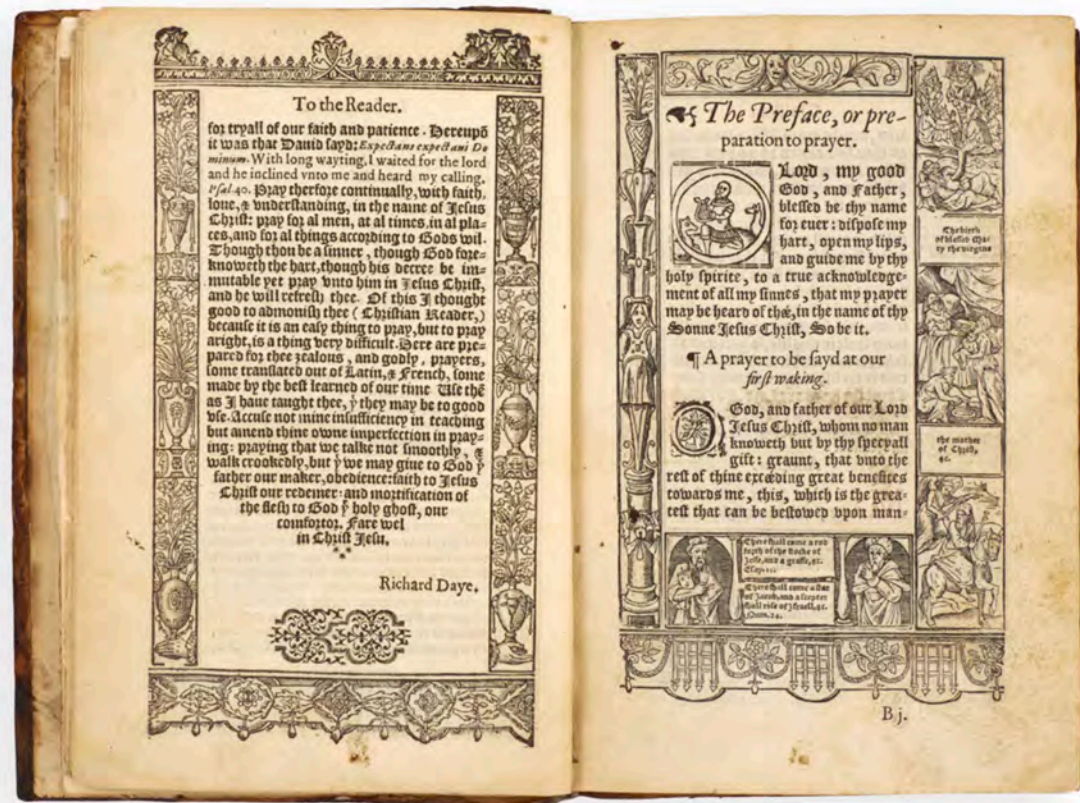 To the Reader.
for tryall of our faith and patience. Hereupõ
it was that Dauid sayd: Expectans expectani Do
minum. With long wayting, I waited for the lord
and he inclined vnto me and heard my calling.
Psal.40. Pray therfore continually, with faith,
loue, & vnderstanding, in the name of Jesus
Christ: pray for al men, at al times, in al pla-
ces, and for al things according to Gods wil.
Though thou be a sinner, though God fore-
knoweth the hart, though his decree be im-
mutable yet pray vnto him in Jesus Christ,
and he will refresh thee. Of this I thought
good to admonish thee (Christian Reader,)
because it is an easy thing to pray, but to pray
aright, is a thing very difficult. Here are pre-
pared for thee zealous, and godly, prayers,
some translated out of Latin, & French, some
made by the best learned of our time Use thẽ
as I haue taught thee, ẏ they may be to good
vse. Accuse not mine insufficiency in teaching
but amend thine owne imperfection in pray-
ing: praying that we talke not smoothly, &
walk crookedly, but ẏ we may giue to God ẏ
father our maker, obedience: faith to Jesus
Christ our redemer: and mortification of
the flesh to God ẏ holy ghost, our
comfortor. Fare wel
in Christ Jesu.
Richard Daye.
The Preface, or pre-
paration to prayer.
O Lord, my good
God, and Father,
blessed be thy name
for euer: dispose my
hart, open my lips,
and guide me by thy
holy spirite, to a true acknowledge-
ment of all my sinnes, that my prayer
may be heard of thée, in the name of thy
Sonne Jesus Christ, So be it.
¶ A prayer to be sayd at our
first waking.
O God, and father of our Lord
Jesus Christ, whom no man
knoweth but by thy specyall
gift: graunt, that vnto the
rest of thine excéeding great benefites
towards me, this, which is the grea-
test that can be bestowed vpon man-
The birth
of blessed Ma-
ry the virgine
the mother
of Christ,
&c.
There shall come a rod
forth of the stocke of
Jesse, and a graffe, &c.
Esay.11.
There shall come a star
of Jacob, and a scepter
shall rise of Israell, &c.
Num.24.
B j.